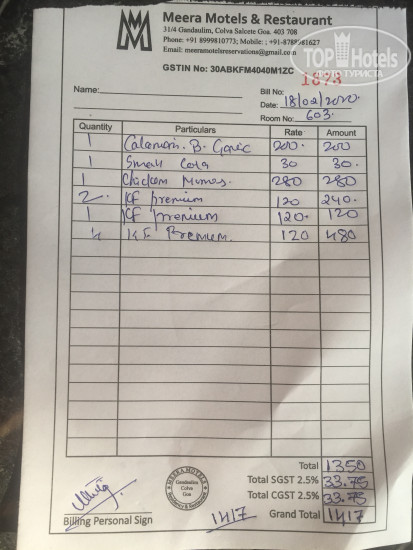 Meera Motels & Restaurant
31/4 Gandaulim, Colva Salcete Goa. 403 708
Phone: +91 8999810773; Mobile: ; +91-8788981627
Email: meeramotelsreservations@gmail.com
GSTIN No: 30ABKFM4040M1ZC
TOP Hotels
Bill No: 1873
Name:
Date: 18/02/2020.
Room No: 603.
Quantity Particulars Rate Amount
1 Calamari. B. Garlic 200. 200
1 Small Cola 30 30.
1 Chicken 280 280
2. KF premium 120 240.
1 KF premium 120. 120
4 KF Premium. 120 480
Total 1350
Total SGST 2.5% 33.75
Total CGST 2.5% 33.75
1417 Grand Total 1417
MEERA MOTELS
Gandaulim
Colva
Goa
Billing Personal Sign